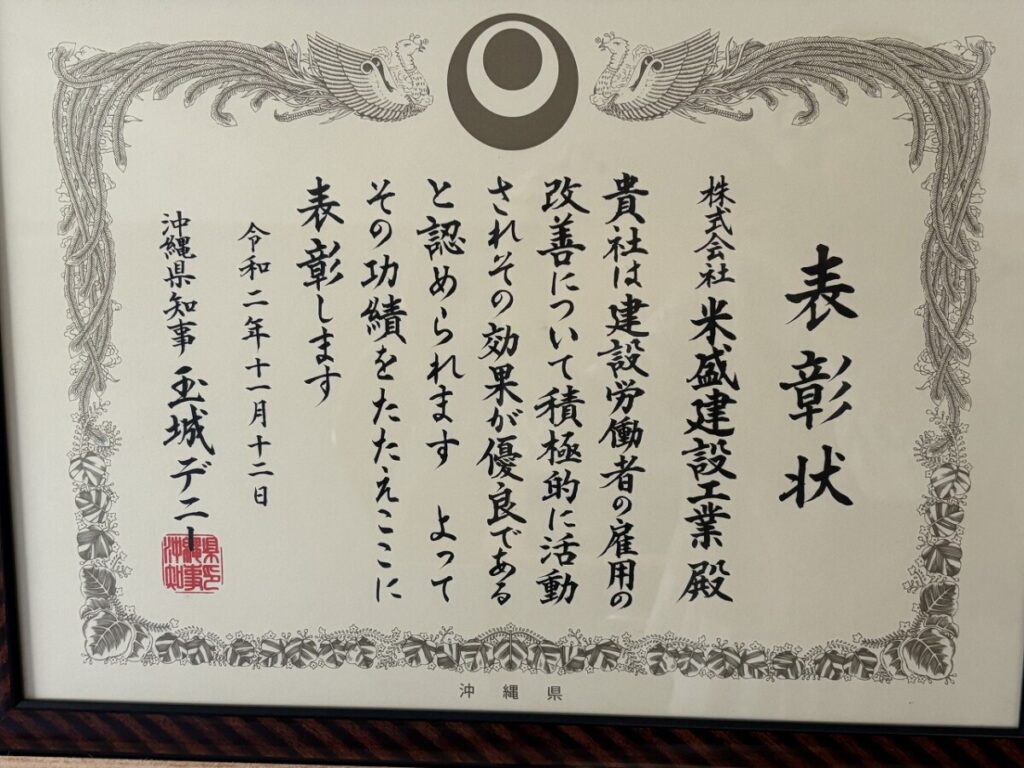 表彰状
株式会社 米盛建設工業 殿
貴社は建設労働者の雇用の
改善について積極的に活動
されその効果が優良である
と認められます よって
その功績をたたえここに
表彰します
令和二年十一月十二日
沖縄県知事 玉城デニー
沖縄県